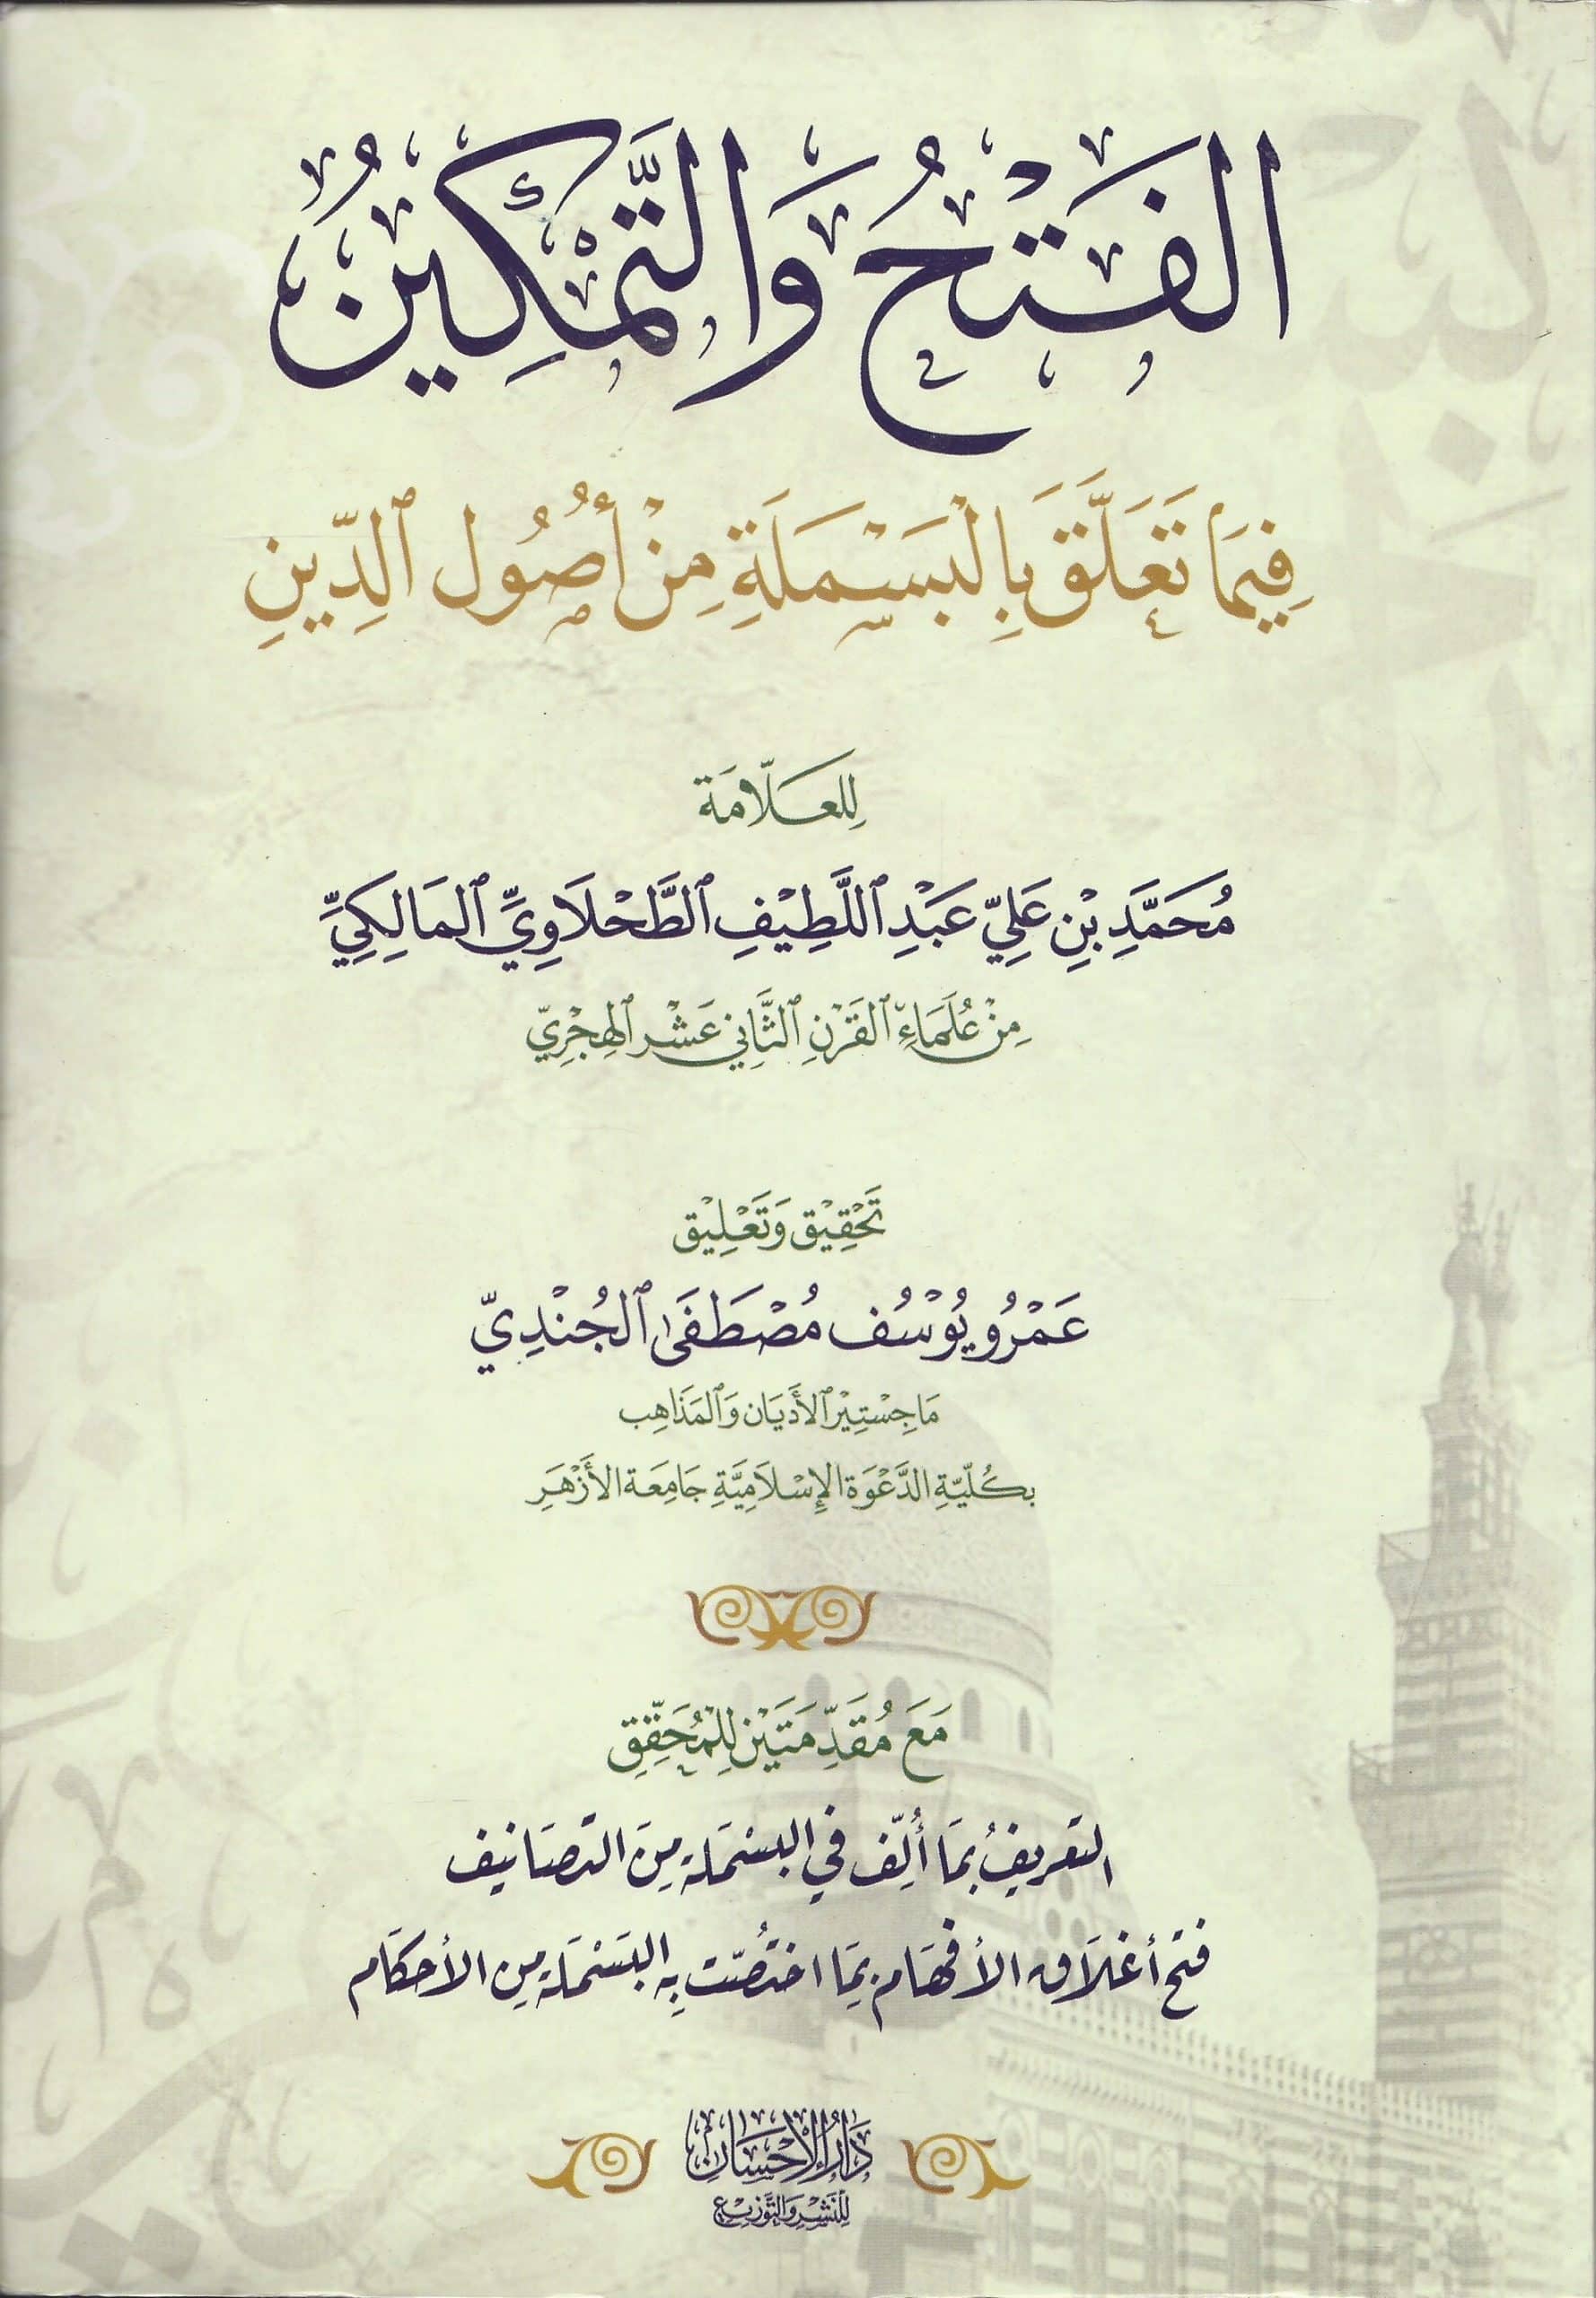 الفَتْحُ وَالتَّمْكِينُ
فِيمَا تَعَلَّقَ بِالْبَسْمَلَةِ مِنْ أُصُولِ ٱلدِّينِ
لِلعَلّامَة
مُحَمَّدِ بْنِ عَلِيّ عَبْدِ ٱللَّطِيْفِ ٱلطَّحْلَاوِيِّ ٱلمَالِكِيِّ
مِنْ عُلَمَاءِ ٱلقَرْنِ ٱلثَّانِي عَشْر ٱلهِجْرِيّ
تَحْقِيْق وَتَعْلِيْق
عَمْرُو يُوْسُف مُصْطَفَى ٱلجُنْدِيّ
مَاجِسْتِيْر ٱلأَدْيَان وَٱلمَذَاهِب
بكُلّيّةِ الدَّعْوَة الإِسْلَامِيَّةِ جَامِعَة الأَزْهَرِ
مَعَ مُقَدِّمَتَيْنِ لِلْمُحَقِّقِ
التَعريفُ بِمَا أُلِّف في البسْمَلة مِنَ التصَانيف
فتح أغلَاق الأفهَام بِمَا اختُصّت بِه البَسْمَلة مِن الأحكَام
دَارُ الإِحْسَان
لِلنَّشْرِ وَالتَّوْزِيْع